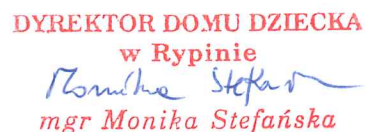 DYREKTOR DOMU DZIECKA
w Rypinie
Monika Stefań
mgr Monika Stefańska